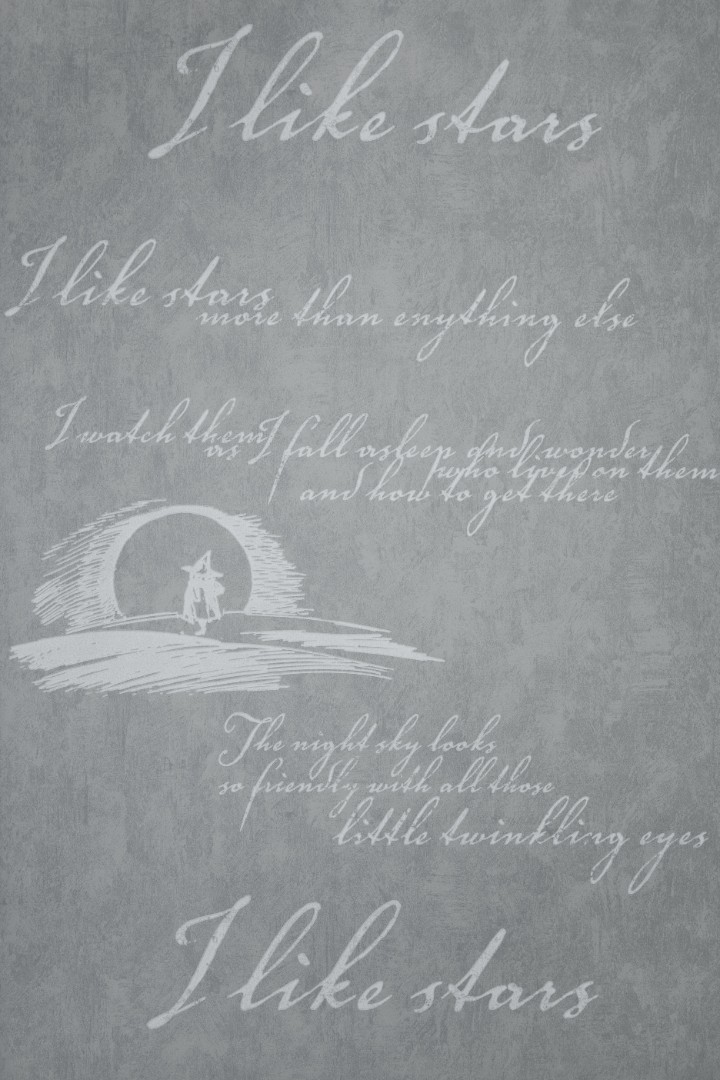 I like stars
I like stars
more than enything else
I watch them
as I fall asleep and wonder
who lives on them
and how to get there
The night sky looks
so friendly with all those
little twinkling eyes
I like stars